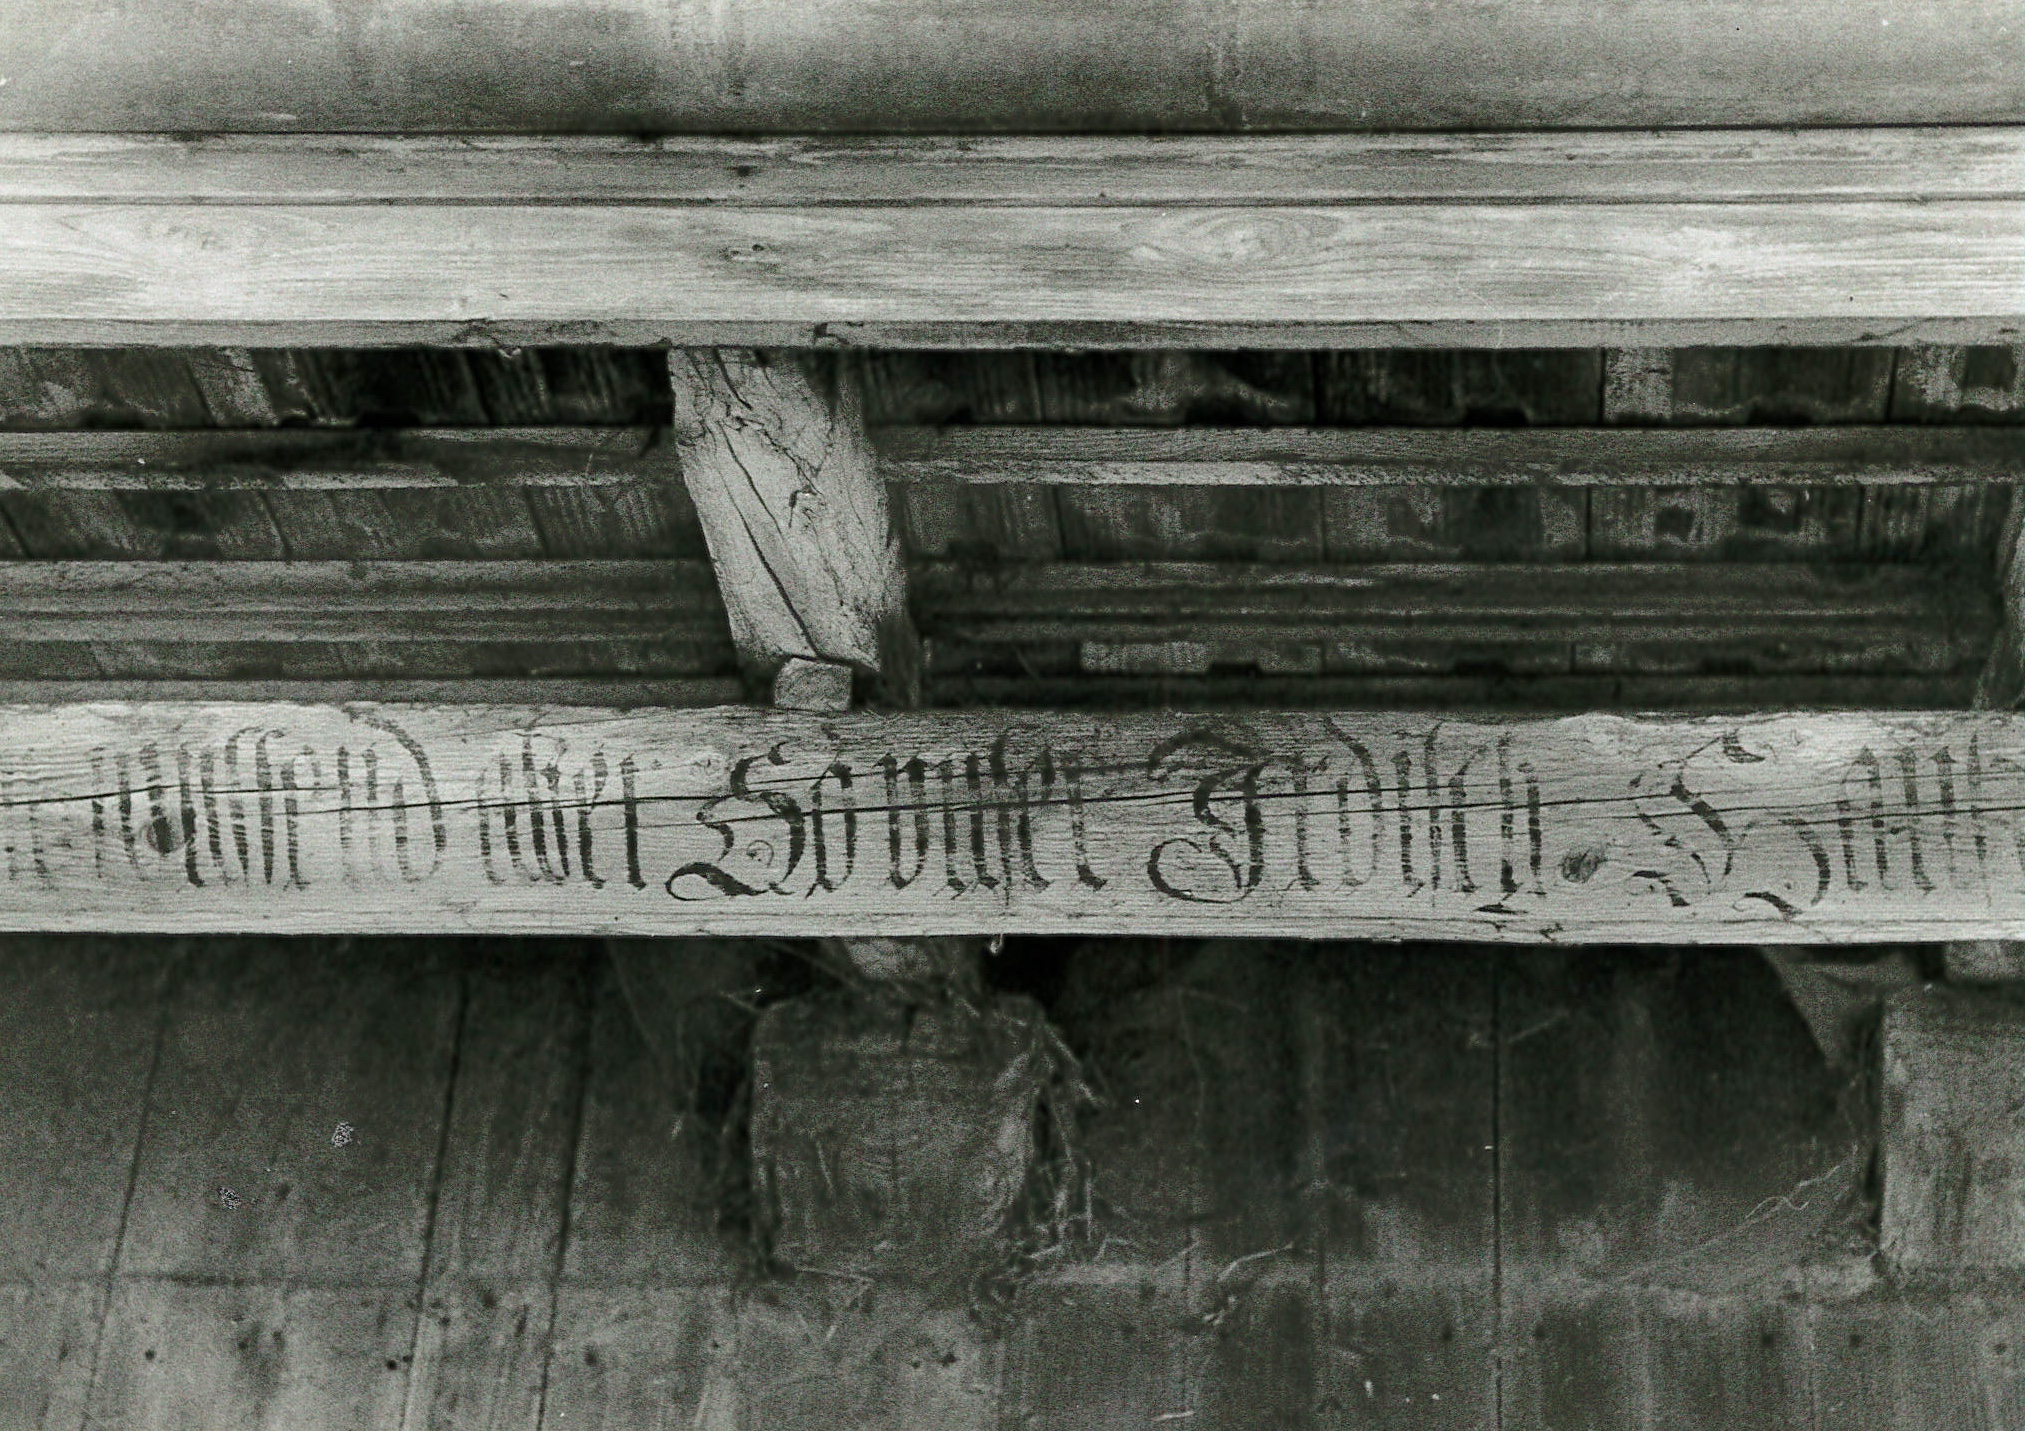 wüssend aber So vnser Irdisch Hau